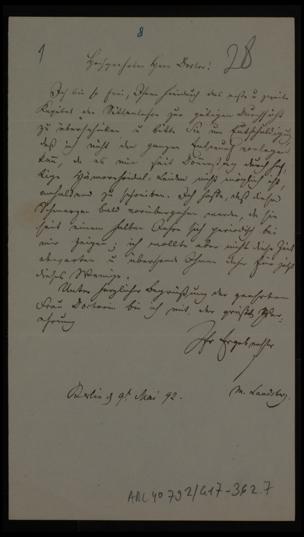 8
1
28
Hochgeehrter Herr Doctor!
Ich bin so frei, Ihnen hierdurch das erste u. zweite
Kapitel der Sittenlehre zur gütigen Durchsicht
zu überschicken u. bitte Sie um Entschuldigung,
daß ich nicht den ganzen Entwurf vorlegen
kann, da es mir seit Donnerstag durch
Leiden nicht möglich ist
anhaltend zu schreiben. Ich hoffe, daß diese
Schmerzen bald vorübergehen werden, da sie
seit einem halben Jahre sich periodisch bei
mir zeigen; ich wollte aber nicht diese Zeit
abwarten u. übersende Ihnen daher für jetzt
dieses Wenige.
Unter herzlicher Begrüßung der geehrten
Frau Doctorin bin ich mit der größten
Ihr Ergebenster
M. Landsberg
Berlin d. 9t. Mai 92.
ARC 4o 792/G17-362.7